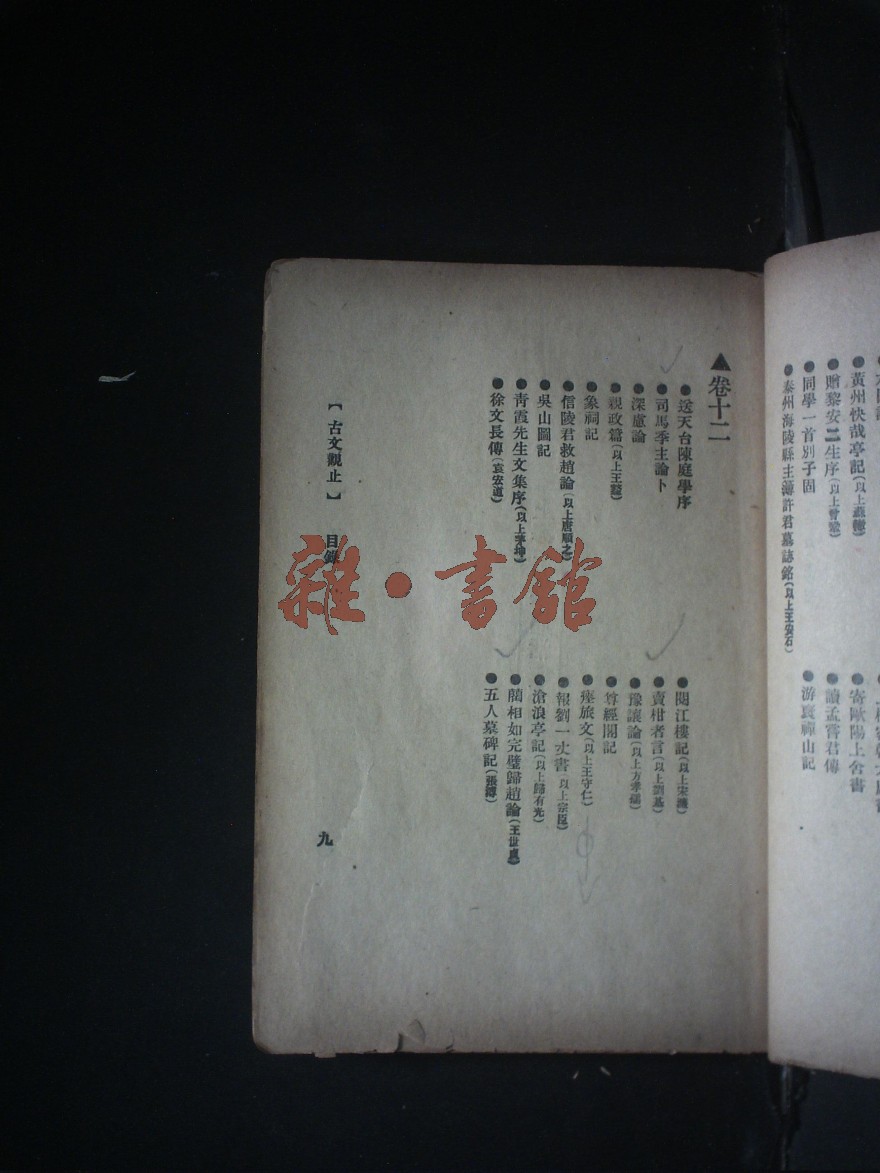 黃州快哉亭記(以上蘇轍)
寄歐陽上舍書
●贈黎安二生序(以上曾鞏)
●讀孟嘗君傳
●同學一首別子固
●游褒禪山記
●泰州海陵縣主簿許君墓誌銘(以上王安石)
▲卷十二
●送天台陳庭學序
●閱江樓記(以上宋濂)
●司馬季主論卜
●賣柑者言(以上劉基)
●深慮論
●豫讓論(以上方孝孺)
●親政篇(以上王鏊)
●尊經閣記
●象祠記
●瘞旅文(以上王守仁)
●信陵君救趙論(以上唐順之)
●報劉一丈書(以上宗臣)
●吳山圖記
●滄浪亭記(以上歸有光)
●青霞先生文集序(以上茅坤)
●藺相如完璧歸趙論(王世貞)
●徐文長傳(袁宏道)
●五人墓碑記(張溥)
【古文觀止】 目錄
九
雜·書館